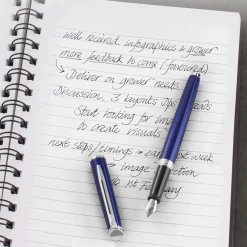 well received, infographics & grower
more feedback to come (favoured)
↳ Deliver on grower needs.
Discussion, 3 layouts
Start looking for
to create visuals
next steps/timings → week
→ image
1st February